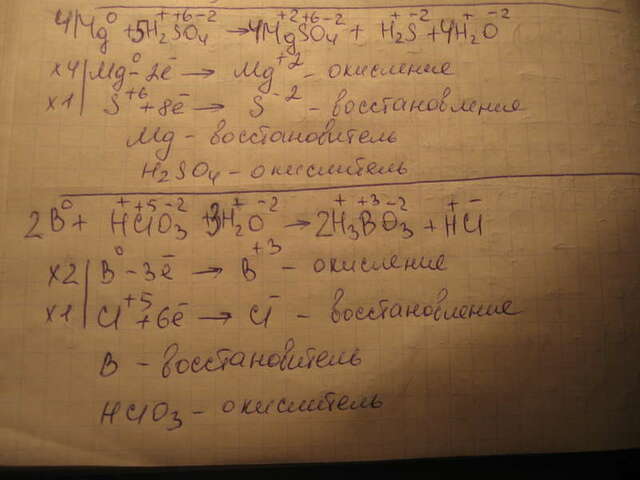 4Mg⁰ + 5H₂⁺S⁺⁶O₄⁻² → 4Mg⁺²S⁺⁶O₄⁻² + H₂⁺S⁻² + 4H₂⁺O⁻²
x4 | Mg⁰ - 2ē → Mg⁺² - окисление
x1 | S⁺⁶ + 8ē → S⁻² - восстановления
Mg - восстановитель
H₂SO₄ - окислитель
2B⁰ + H⁺Cl⁺⁵O₃⁻² + 3H₂⁺O⁻² → 2H₃⁺B⁺³O₃⁻² + H⁺Cl⁻
x2 | B⁰ - 3ē → B⁺³ - окисление
x1 | Cl⁺⁵ + 6ē → Cl⁻ - восстановление
B - восстановитель
HClO₃ - окислитель